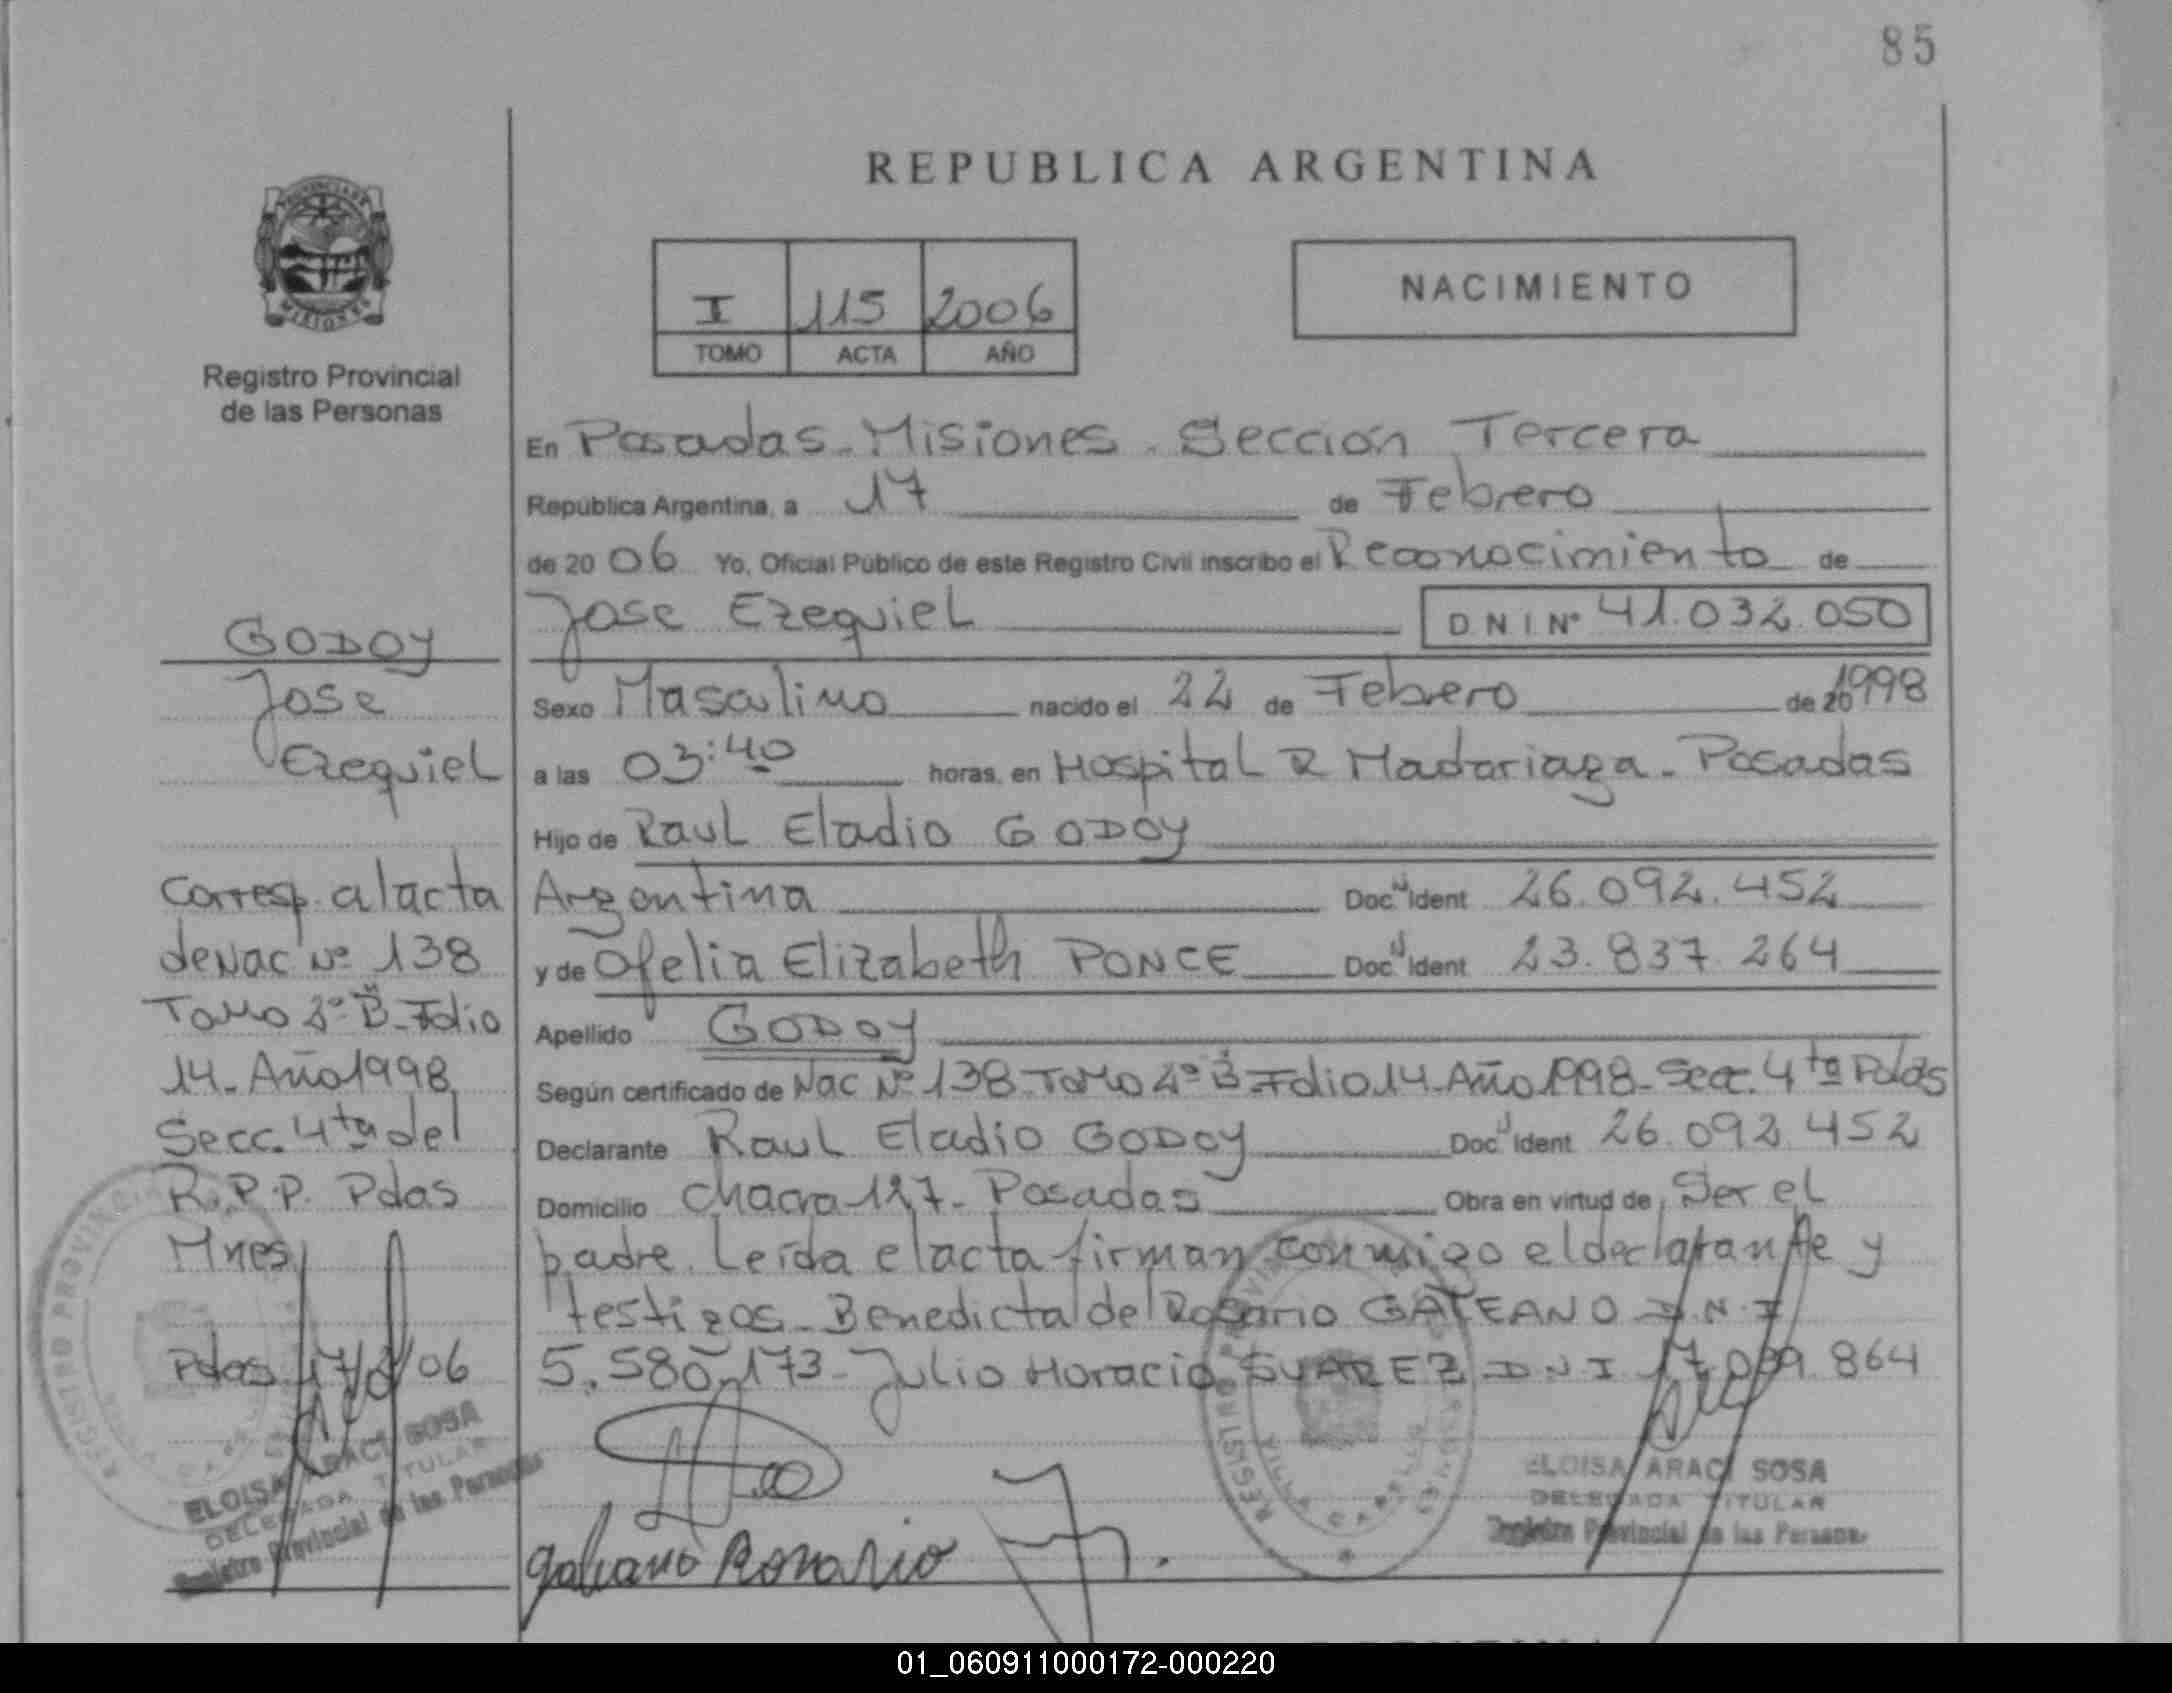 85
REPUBLICA ARGENTINA
I 115 2006
TOMO ACTA AÑO
NACIMIENTO
Registro Provincial
de las Personas
En Posadas-Misiones-Sección Tercera
República Argentina, a 17 de Febrero
de 20 06 Yo, Oficial Público de este Registro Civil inscribo el Reconocimiento de
Jose Ezequiel D N I Nº 41.032.050
Sexo Masculino nacido el 22 de Febrero de 20 1998
a las 03:40 horas, en Hospital R Madariaga-Posadas
Hijo de Raul Eladio GODOY
Argentina Doc. Ident 26.092.452
y de Ofelia Elizabeth PONCE Doc. Ident 23.837.264
Apellido GODOY
Según certificado de Nac Nº 138-Tomo 2º B-Folio 14-Año 1998-Secc. 4ta Pdas
Declarante Raul Eladio GODOY Doc. Ident 26.092.452
Domicilio Chacra 127-Posadas Obra en virtud de Ser el
padre. Leída el acta firman conmigo el declarante y
testigos-Benedicta del Rosario GALEANO D.N.I
5.580.173-Julio Horacio SUAREZ D.N.I 17.039.864
GODOY
Jose
Ezequiel
Corresp. al acta
de Nac Nº 138
Tomo 2º B-Folio
14-Año 1998
Secc. 4ta del
R.P.P. Pdas
Mnes
Pdas 17/2/06
REGISTRO PROVINCIAL
ELOISA ARACI SOSA
DELEGADA TITULAR
Registro Provincial de las Personas
galeano Rosario
REGISTRO PROVINCIAL
VILLA CABELLO
ELOISA ARACI SOSA
DELEGADA TITULAR
Registro Provincial de las Personas
01_060911000172-000220